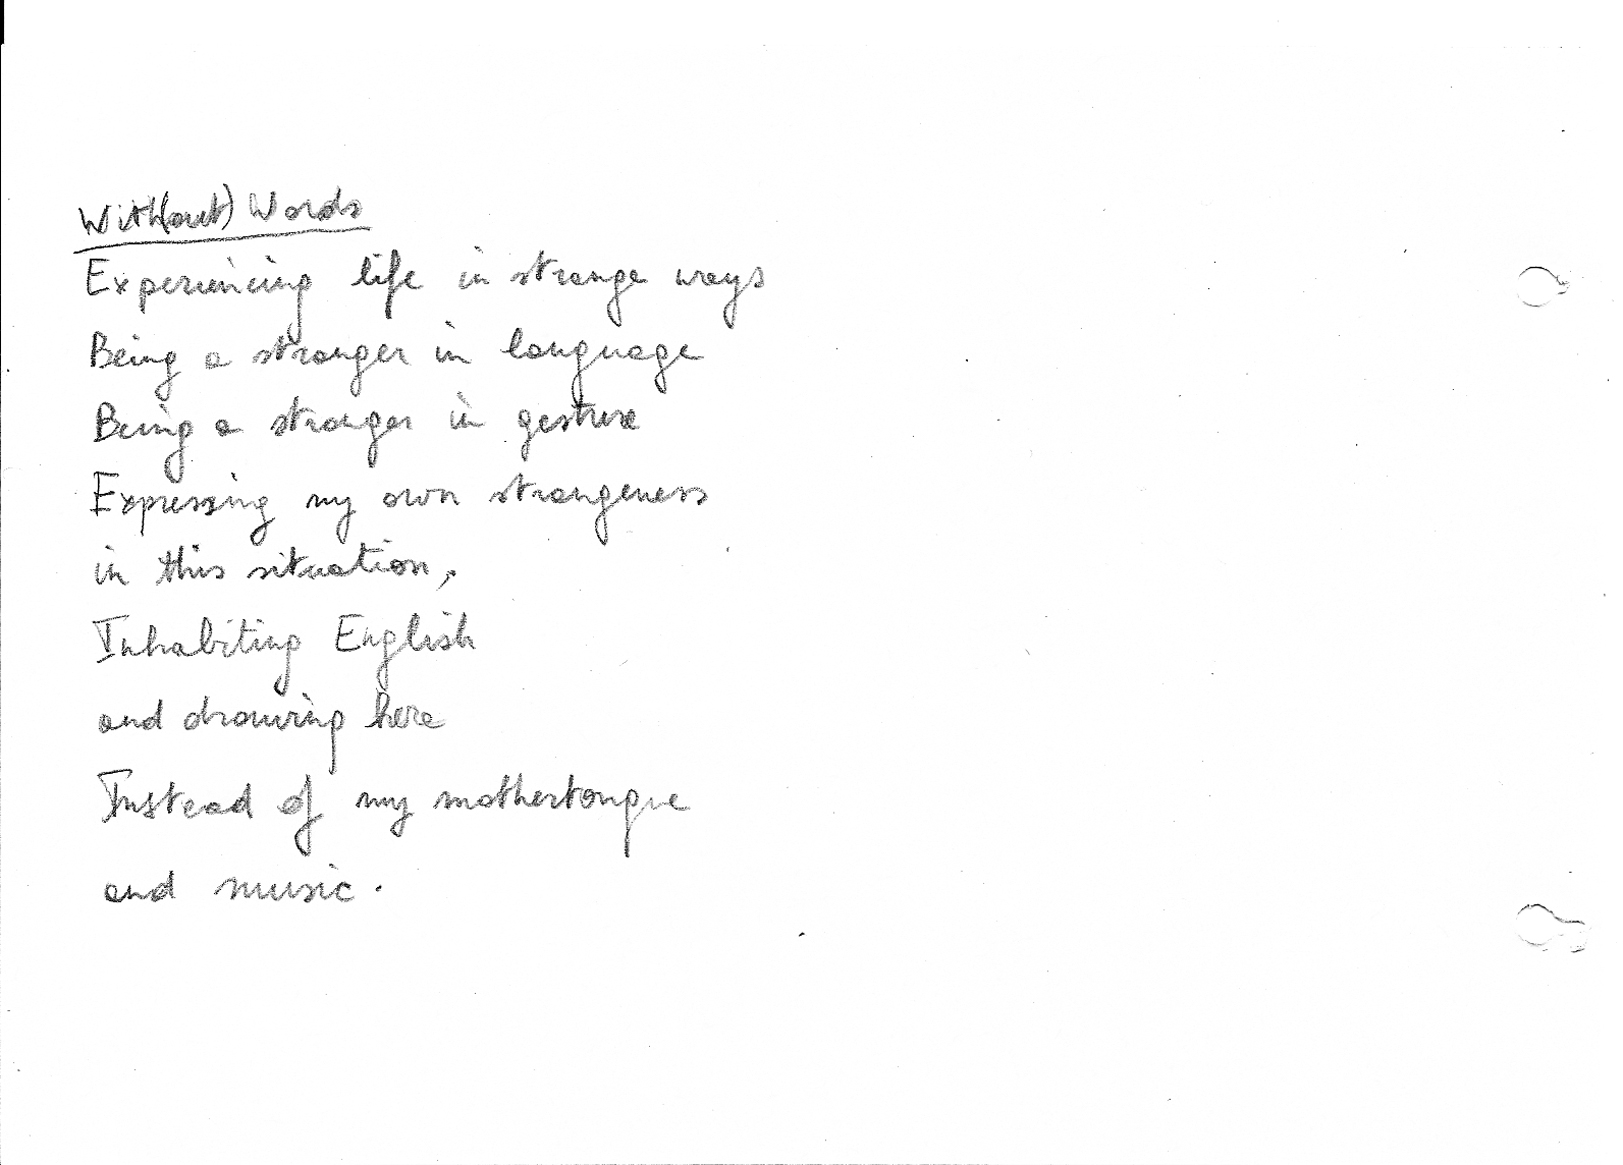 With(out) Words
Experiencing life in strange ways
Being a stranger in language
Being a stranger in gesture
Expressing my own strangeness
in this situation,
Inhabiting English
and drawing here
Instead of my mothertongue
and music.